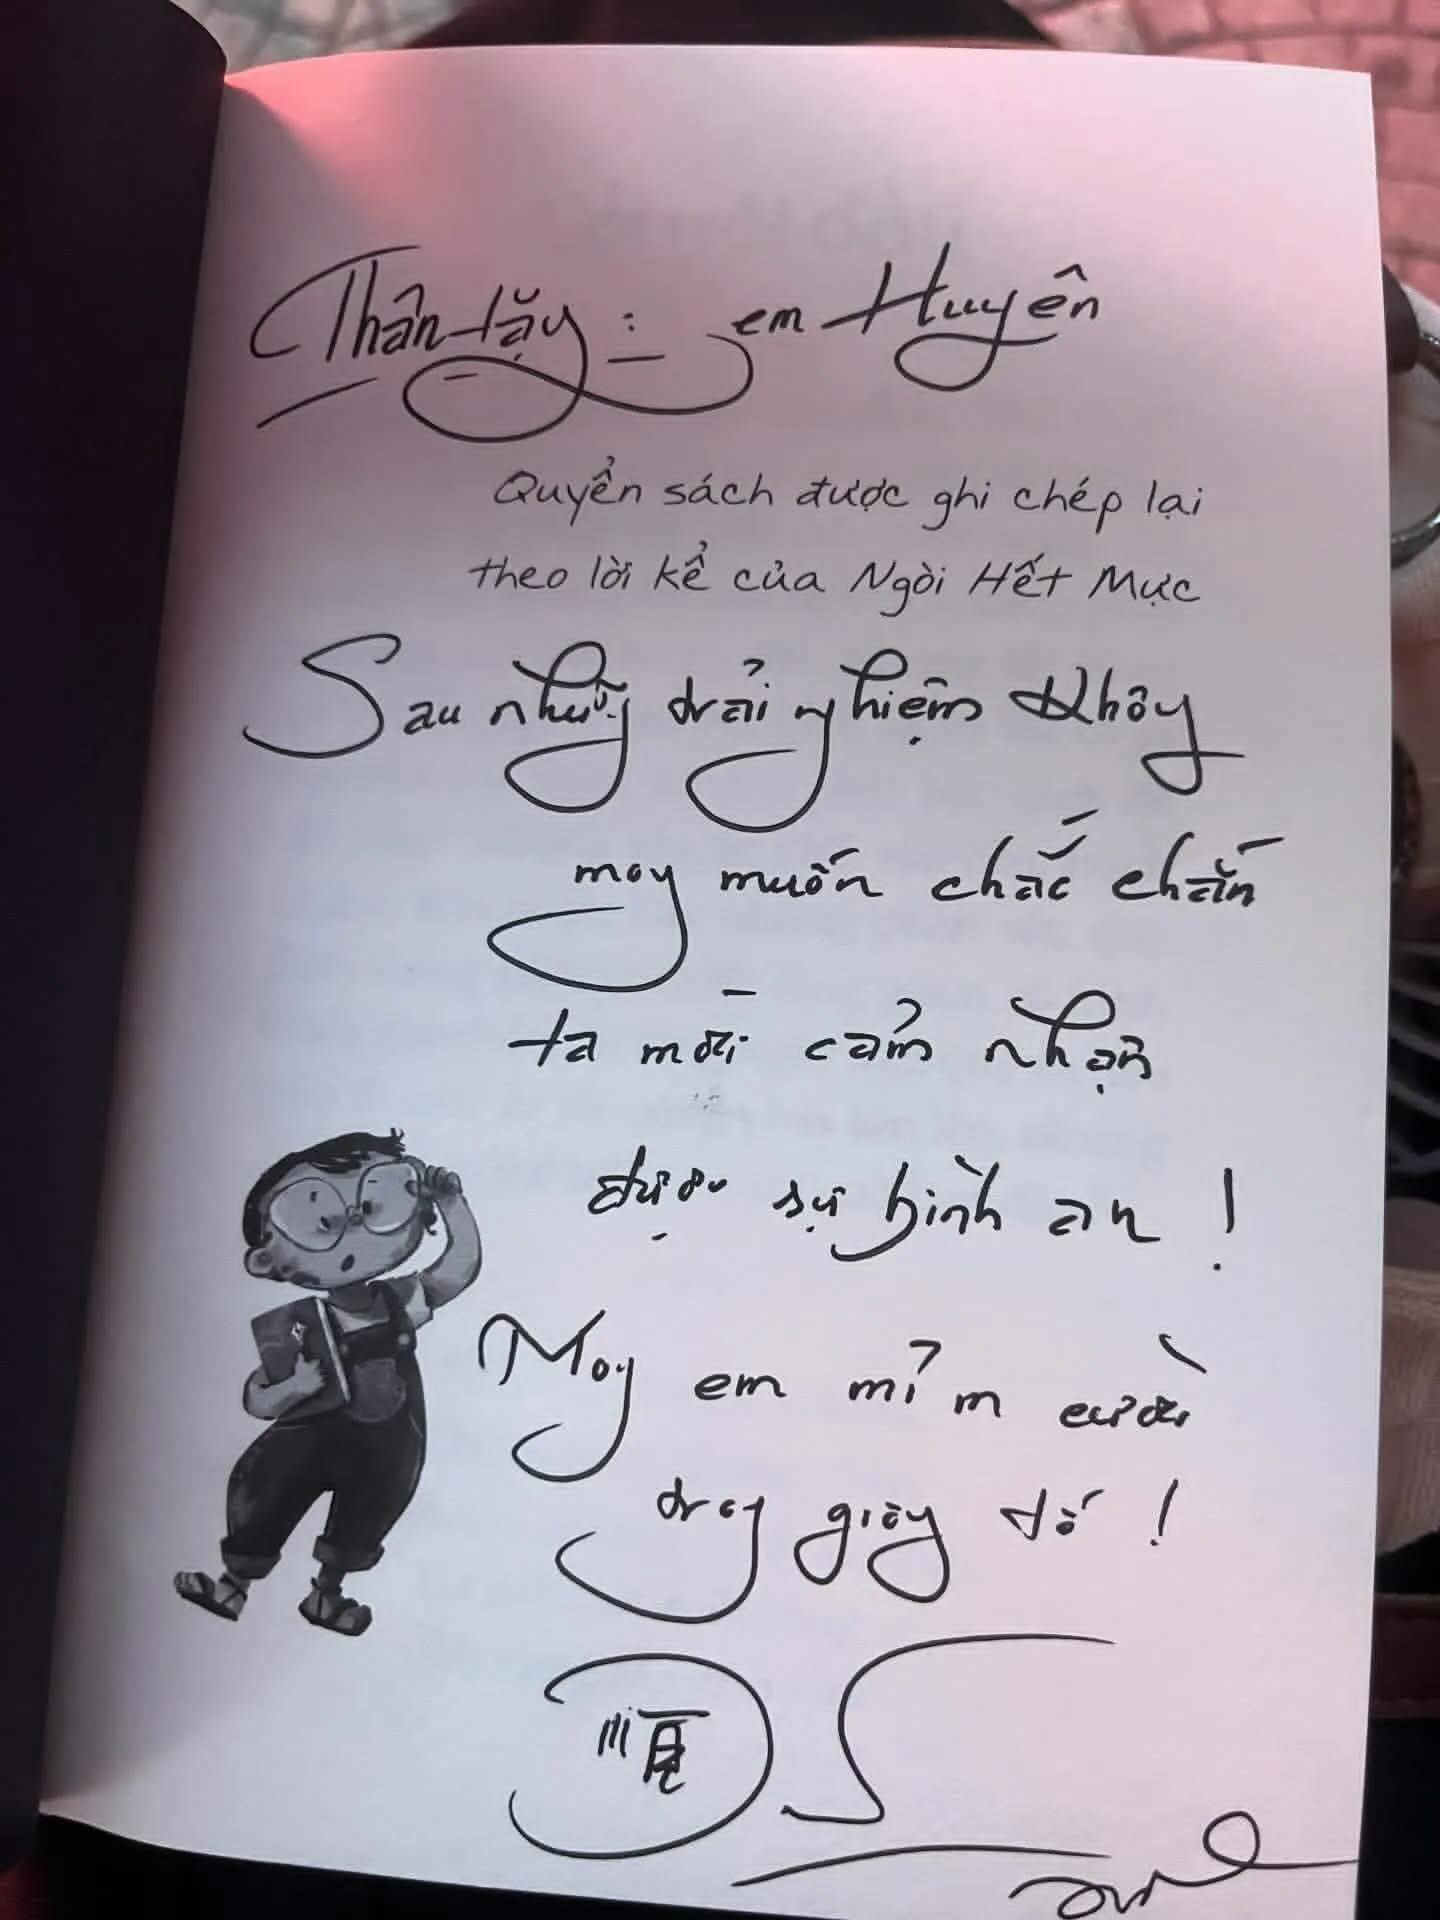 Thân tặng : em Huyên
Quyển sách được ghi chép lại
theo lời kể của Ngòi Hết Mực
Sau những trải nghiệm không
may muốn chắc chắn
ta mới cảm nhận
được sự bình an !
May em mỉm cười
trong giông tố !
順